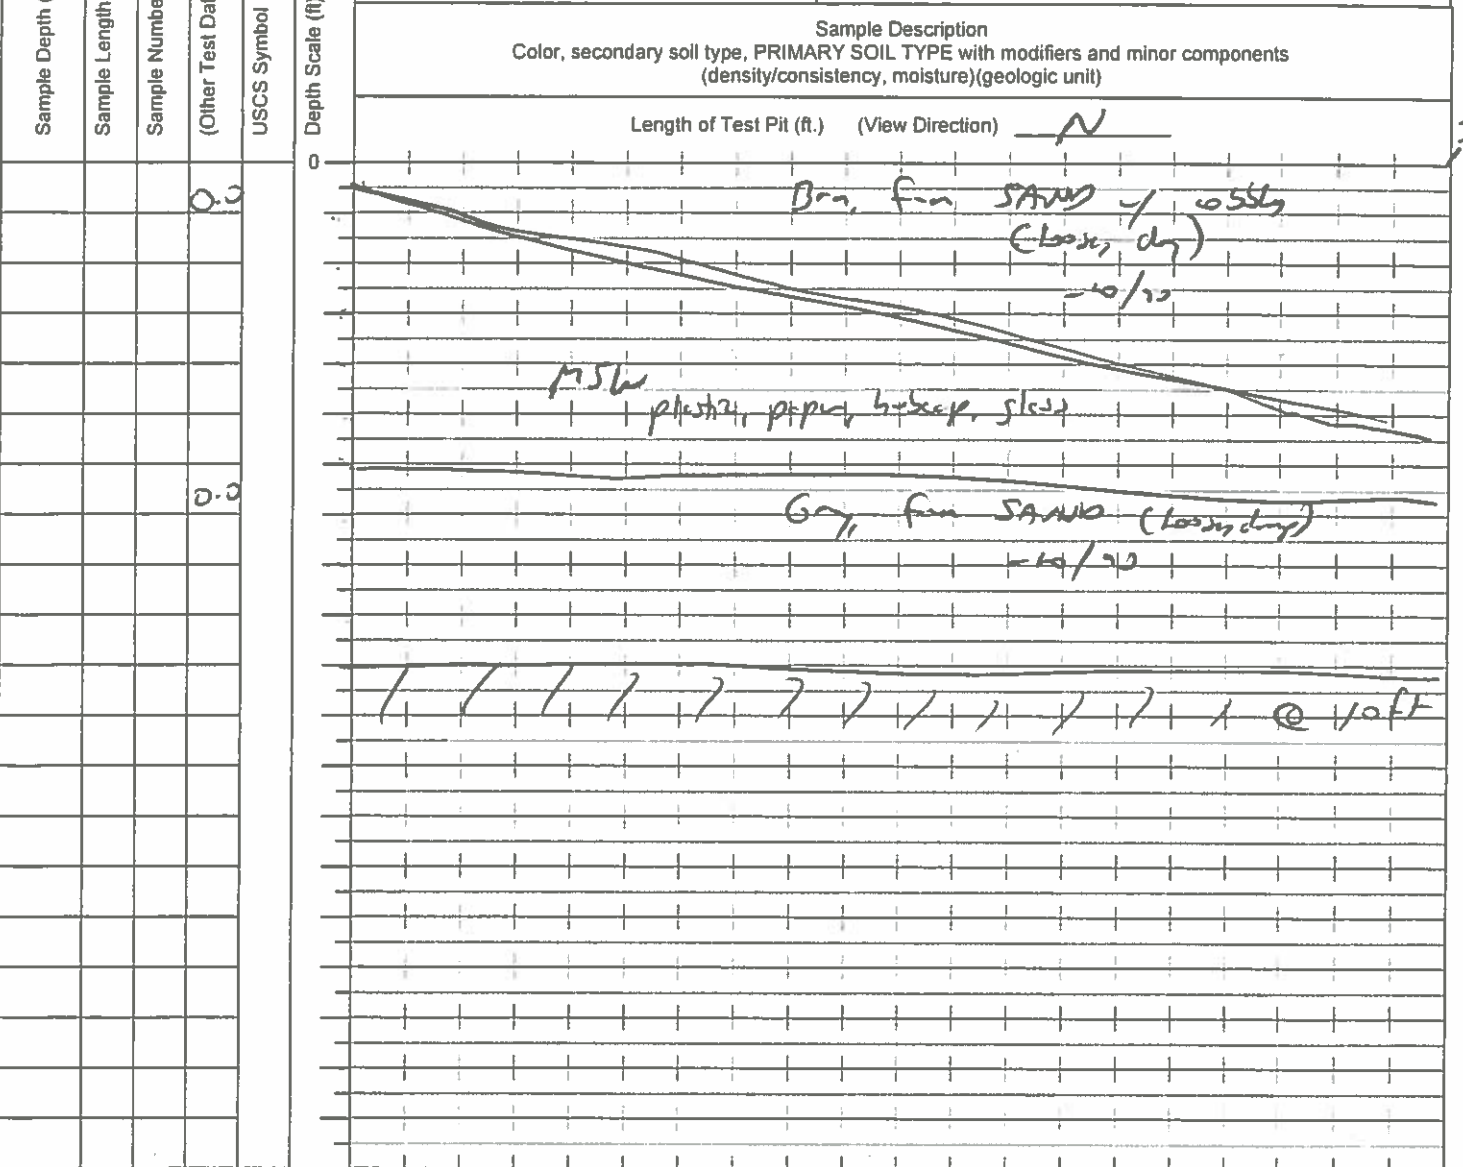 Sample Depth (
Sample Length
Sample Numbe
(Other Test Dat
USCS Symbol
Depth Scale (ft)
Sample Description
Color, secondary soil type, PRIMARY SOIL TYPE with modifiers and minor components
(density/consistency, moisture)(geologic unit)
Length of Test Pit (ft.) (View Direction) N
0
0.0
Brn, SAND w/
(Loose, dry)
MSW
plastic, paper, glass
0.0
Gry, SAND (Loose,
@ 10 ft